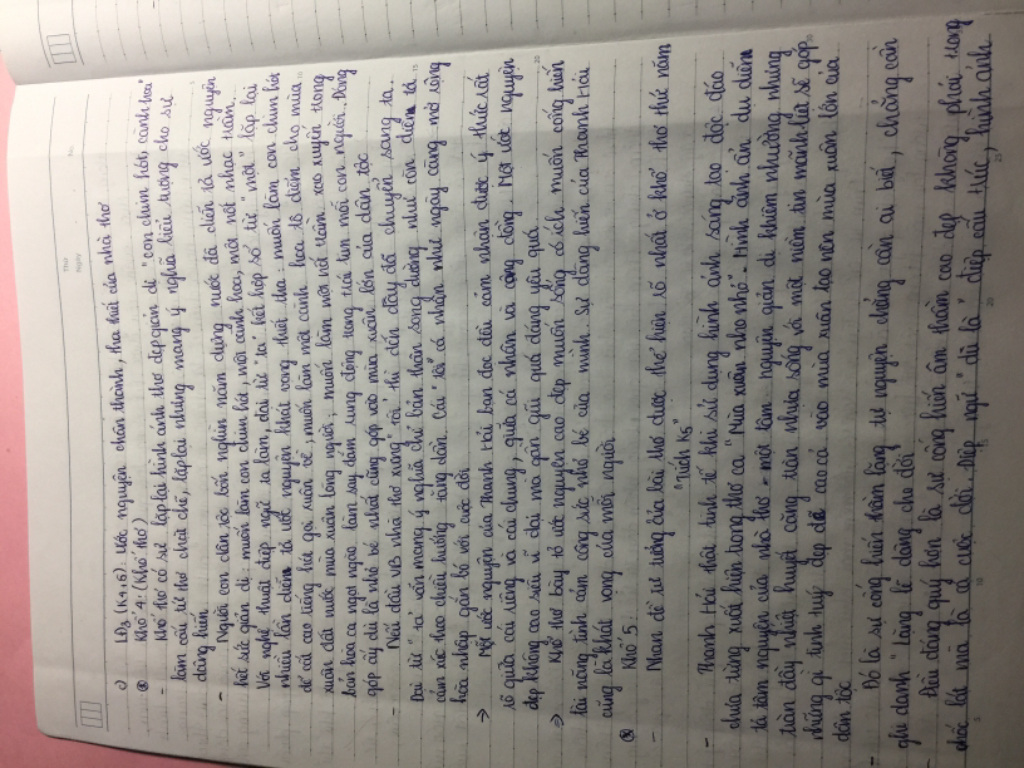 Thứ
Ngày
No.
c) LĐ3 (K4,5,6). Ước nguyện chân thành, tha thiết của nhà thơ
* Khổ 4: (Khổ thơ)
- Khổ thơ có sự lặp lại hình ảnh thơ đẹp giản dị "con chim hót, cành hoa"
làm cấu tứ thơ chặt chẽ, lặp lại nhưng mang ý nghĩa biểu tượng cho sự
dâng hiến
- Người con dân xóc bốn nghìn năm dựng nước đã diễn tả ước nguyện
hết sức giản dị: muốn làm con chim hót, một cành hoa, một nốt nhạc trầm.
Với nghệ thuật điệp ngữ ta làm, đại từ "ta" kết hợp số từ "một" lặp lại
nhiều lần diễn tả ước nguyện khát vọng thiết tha: muốn làm con chim hót
để cá tiếng hát gọi xuân về, muốn làm một cành hoa tô điểm cho mùa
xuân đất nước mùa xuân lòng người; muốn làm một nốt trầm xao xuyến trong
bản hòa ca ngợi ngào làm say đắm rung động trong trái tim mỗi con người. Đóng
góp ấy dù là nhỏ bé nhất cũng góp vào mùa xuân lớn của dân tộc
- Nếu đầu VB nhà thơ xưng "tôi" thì đến đây đã chuyển sang ta.
Đại từ "ta" vẫn mang ý nghĩa chỉ bản thân song dường như còn diễn tả
cảm xúc theo chiều hướng tăng dần. Cái "tôi" cá nhân như ngày càng mở rộng
hòa nhập gắn bó với cuộc đời
⇒ Một ước nguyện của Thanh Hải bạn đọc đều cảm nhận được ý thức rất
rõ giữa cái riêng và cái chung, giữa cá nhân và cộng đồng. Một ước nguyện
đẹp không cao siêu vĩ đại mà gần gũi quá đáng yêu quá.
⇒ Khổ thơ bày tỏ ước nguyện cao đẹp muốn sống có ích muốn cống hiến
tài năng tình cảm công sức nhỏ bé của mình. Sự dâng hiến của Thanh Hải
cũng là khát vọng của mỗi người
* Khổ 5: "Trích K5"
- Nhan đề tư tưởng của bài thơ được thể hiện rõ nhất ở khổ thơ thứ năm
- Thanh Hải thật tinh tế khi sử dụng hình ảnh sáng tạo độc đáo
chưa từng xuất hiện trong thơ ca "Mùa xuân nho nhỏ" - Hình ảnh ẩn dụ diễn
tả tâm nguyện của nhà thơ - một tâm nguyện giản dị khiêm nhường nhưng
tràn đầy nhiệt huyết căng tràn nhựa sống và một niềm tin mãnh liệt sẽ góp
những gì tinh tuý đẹp đẽ cao cả vào mùa xuân tạo nên mùa xuân lớn của
dân tộc
- Đó là sự cống hiến thầm lặng tự nguyện chẳng cần ai biết, chẳng cần
ghi danh "Lặng lẽ dâng cho đời"
- Điều đáng quý hơn là sự cống hiến âm thầm cao đẹp không phải trong
chốc lát mà là cả cuộc đời. Điệp ngữ "dù là" điệp cấu trúc, hình ảnh